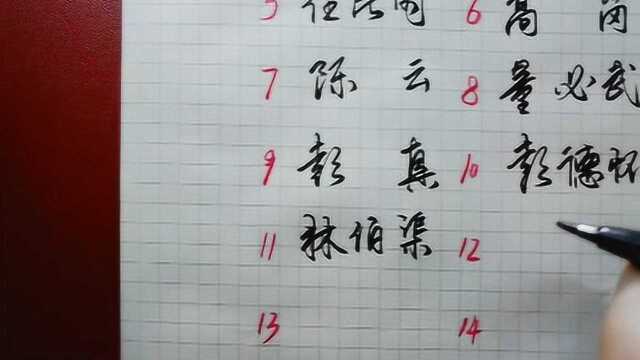 5 任弼时 6 高 岗
7 陈 云 8 董必武
9 彭 真 10 彭德怀
11 林伯渠 12
13 14